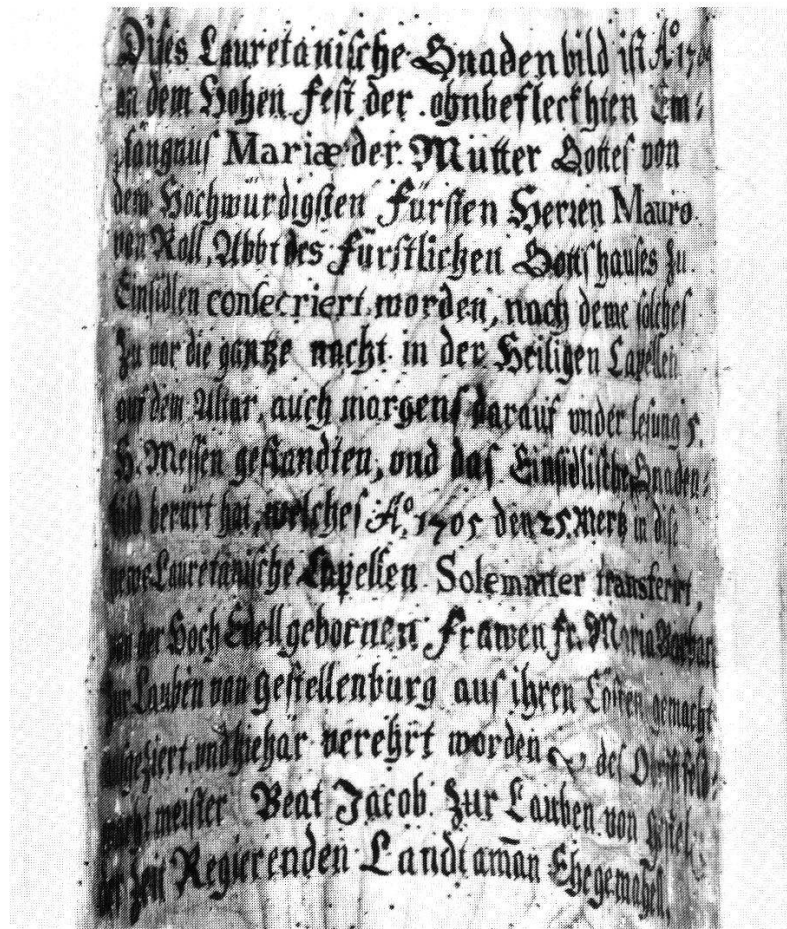 Dises Lauretanische Gnadenbild ist Aº 1704
an dem Hohen fest der ohnbefleckhten Em=
pfängnus Mariæ der Mutter Gottes von
dem Hochwürdigsten Fürsten Herren Mauro
von Roll, Abbt des fürstlichen Gottshauses zu
Einsidlen consecriert worden, nach deme solches
Zu vor die gantze nacht in der Heiligen Capellen
auf dem Altar, auch morgens darauf vnder lesung 5.
H. Messen gestandten, vnd das Einsidlische Gnaden=
bild berürt hat, welches Aº 1705 den 25. Mertz in dise
newe Lauretanische Capellen Solemniter transferirt,
von der Hoch Edell gebornen Frawen fr. Maria Barbara
Zur Lauben von Gestellenburg aus ihren Costen gemacht
ausgeziert, vnd hiehär verehrt worden des Obrist feld=
wacht meister Beat Jacob Zur Lauben von
der Zeit Regierenden Landtaman Ehegemahel.